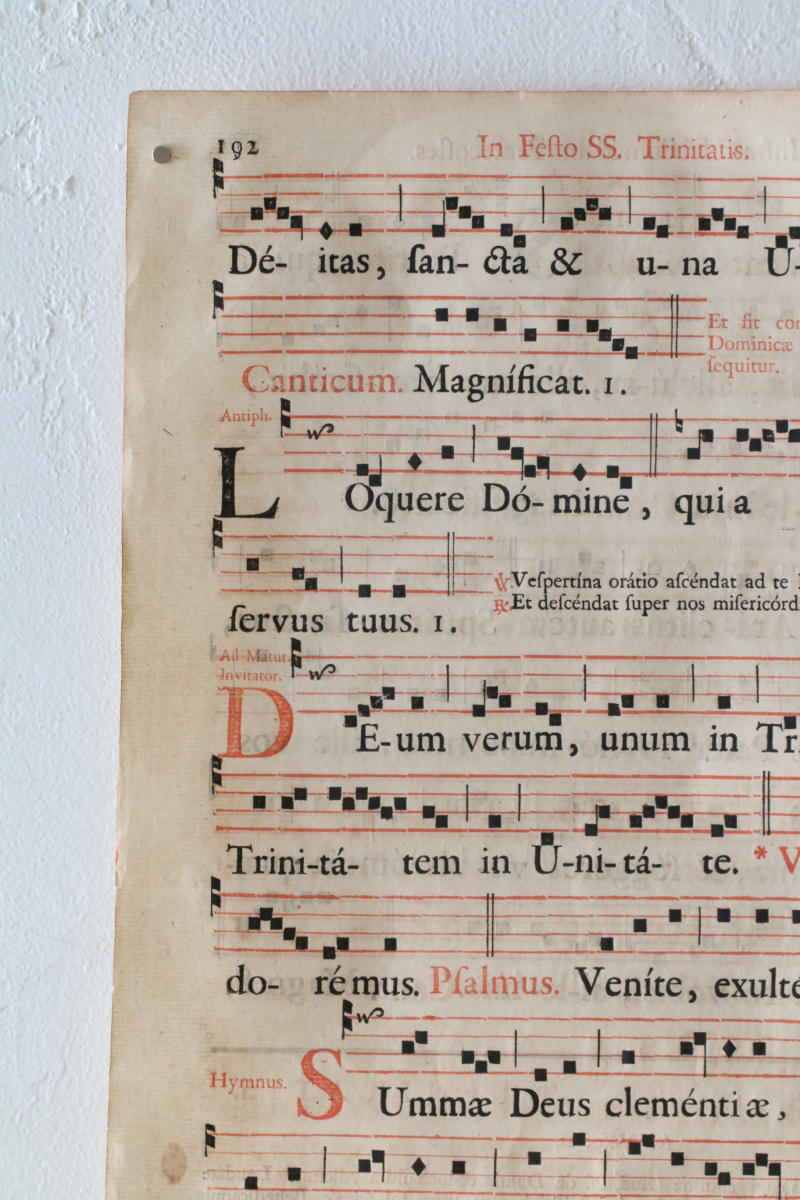 192
In Feſto SS. Trinitatis.
Dé- itas, ſan- cta & u- na U-
Et ſit
Dominicæ
ſequitur.
Canticum. Magníficat. 1.
Antiph.
LOquere Dó- mine, quia
℣. Veſpertína orátio aſcéndat ad te
℟. Et deſcéndat ſuper nos miſericórd
ſervus tuus. 1.
Ad Matut.
Invitator.
DE-um verum, unum in Tri
Trini-tá- tem in U-ni-tá- te. * V
do- rémus. Pſalmus. Veníte, exulté
Hymnus.
SUmmæ Deus cleménti æ,